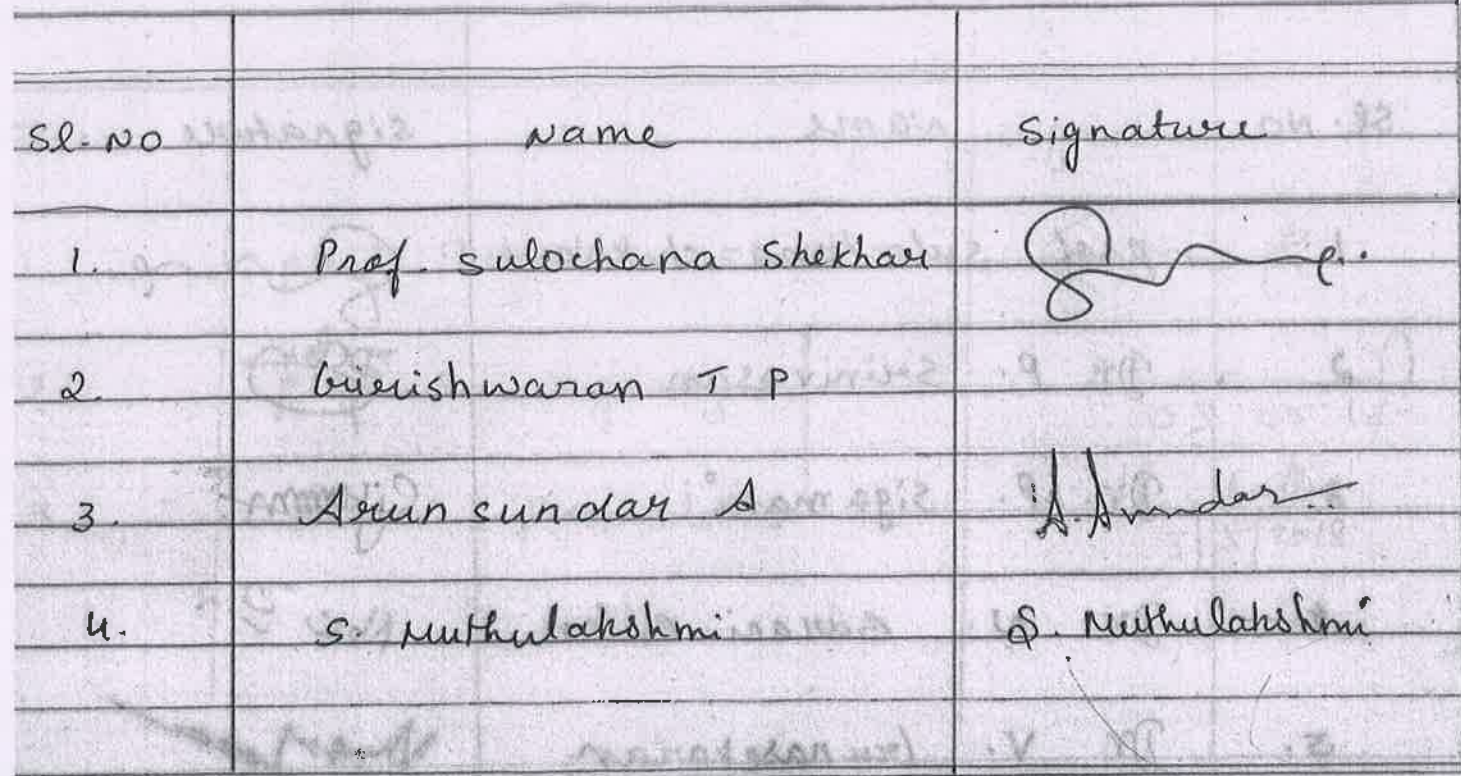 Sl. No Name Signature
1. Prof. Sulochana Shekhar
2. Girishwaran T P
3. Arun sundar A A. Asundar
4. S. Muthulakshmi S. Muthulakshmi